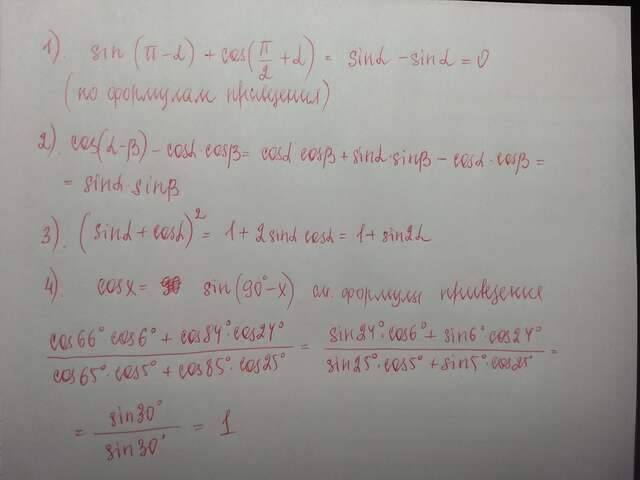 1). sin(π-α) + cos(π/2 + α) = sinα - sinα = 0
(по формулам приведения)
2). cos(α-β) - cosα cosβ = cosα cosβ + sinα·sinβ - cosα·cosβ =
= sinα sinβ
3). (sinα + cosα)² = 1 + 2sinα cosα = 1 + sin2α
4). cosx = sin(90°-x) см. формулы приведения
(cos66° cos6° + cos84°·cos24°)/(cos65°·cos5° + cos85°·cos25°) = (sin24°·cos6° + sin6°·cos24°)/(sin25°·cos5° + sin5°·cos25°) =
= sin30°/sin30° = 1